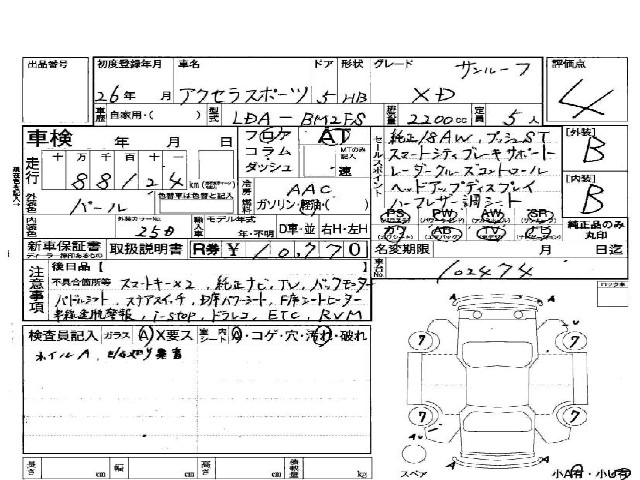 出品番号 初度登録年月 車名 ドア 形状 グレード サンルーフ 評価点
26年 月 アクセラスポーツ 5 HB XD 4
車歴 自家用・( ) 型式 LDA-BM2FS 排気量 2200cc 定員 5人
車検 年 月 日 フロア AT
コラム・ MTのみ記入
ダッシュ 速
セールスポイント 純正18AW, プッシュST
スマートシティブレーキサポート
レーダークルーズコントロール
ヘッドアップディスプレイ
ハーフレザー調シート
[外装] B
[内装] B
走行 十 万 千 百 十 一
88124 km
外装色 パール 色替車は色替と記入
冷房 AAC
燃料 ガソリン・軽油・( )
PS PW AW SR
カワ AB TV ナビ
純正品のみ丸印
内装色 外装カラーNo. 25D 輸入車 モデル年式 年・不明 D車・並 右H・左H
新車保証書 取扱説明書 R券 ¥10,770 名変期限 月 日迄
ディーラー捺印あるもの
車台No. 102474
注意事項 後日品 [
不具合箇所等 スマートキー×2, 純正ナビ, TV, バックモニター
パドルシフト, ステアスイッチ, 助席パワーシート, F席シートヒーター
車線逸脱警報, i-stop, ドラレコ, ETC, RVM
ロック車
検査員記入 ガラス A X要ス 室内 シート 切・コゲ・穴・汚れ・破れ
ホイルA,
7 7
7 7
A A
A A
スペア 小A有・小U有
長さ cm 幅 cm 高さ cm 積載量 kg